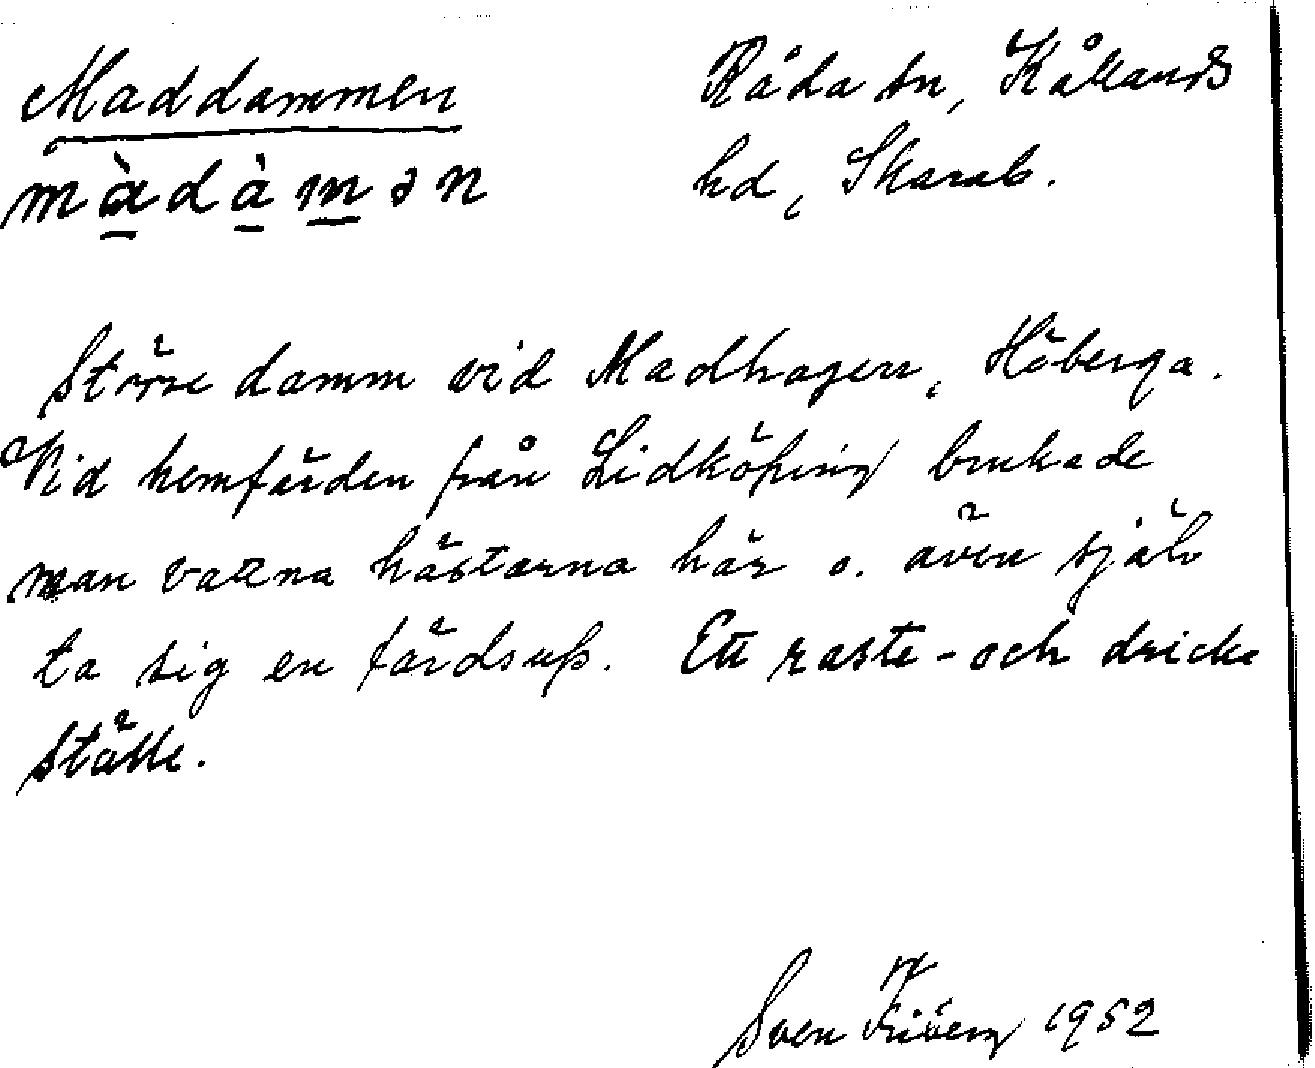 Maddammen
Råda sn, Kållands
màdàmən
hd, Skarab.
Större damm vid Madhagen, Höberga.
Vid hemfärden från Lidköping brukade
man vattna hästarna här o. även själv
ta sig en färdsup. Ett raste- och dricke
ställe.
Sven Friberg 1952